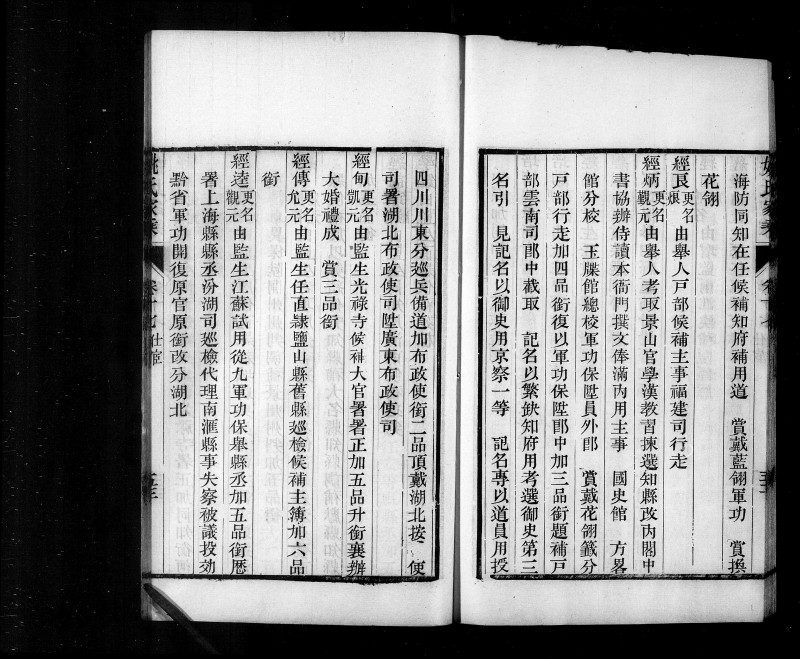 姚氏家乘
卷十七 仕宦
海防同知在任候補知府補用道 賞戴藍翎軍功 賞換
花翎
經艮更名烺由舉人戶部候補主事福建司行走
經炳更名覲元由舉人考取景山官學漢教習揀選知縣改內閣中
書協辦侍讀本衙門撰文俸滿內用主事 國史館 方畧
館分校 玉牒館總校軍功保陞員外郎 賞戴花翎籤分
戶部行走加四品銜復以軍功保陞郎中加三品銜題補戶
部雲南司郎中截取 記名以繁缺知府用考選御史第三
名引 見記名以御史用京察一等 記名專以道員用授
四川川東分巡兵備道加布政使銜二品頂戴湖北按 使
司署湖北布政使司陞廣東布政使司
經甸更名凱元由監生光祿寺候補大官署署正加五品升銜襄辦
大婚禮成 賞三品銜
經傳更名允元由監生任直隸鹽山縣舊縣巡檢候補主簿加六品
銜
經逵更名觀元由監生江蘇試用從九軍功保舉縣丞加五品銜歷
署上海縣縣丞汾湖司巡檢代理南滙縣事失察被議投効
黔省軍功開復原官原銜改分湖北
姚氏家乘
卷十七 仕宦
五三